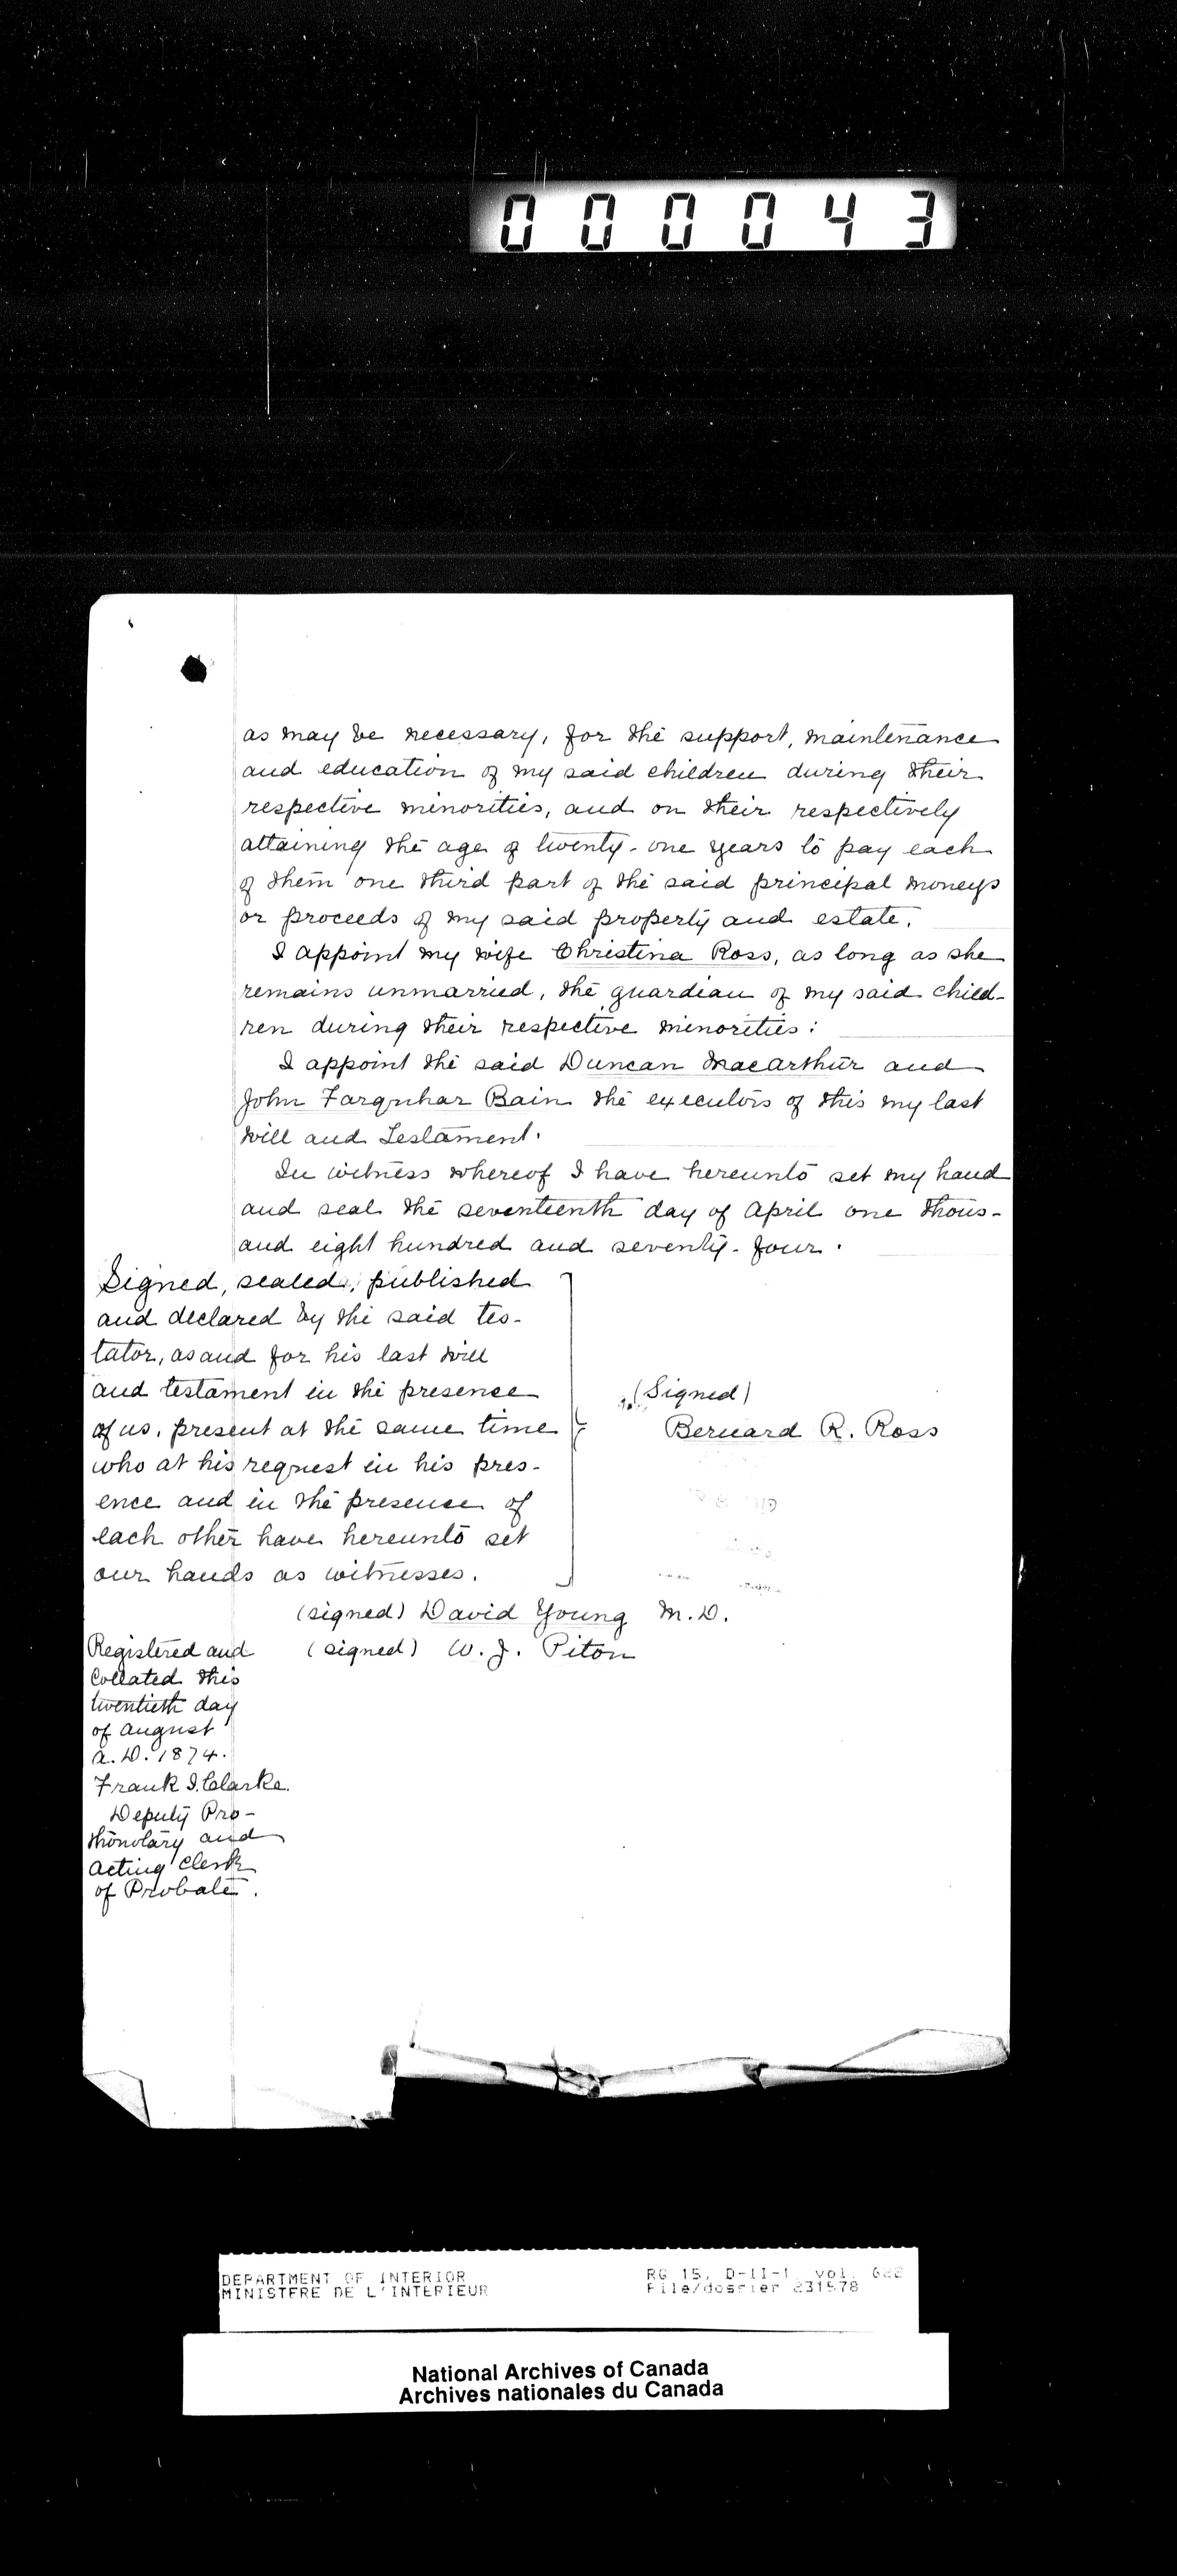 000043
as may be necessary, for the support, maintenance
and education of my said children during their
respective minorities, and on their respectively
attaining the age of twenty-one years to pay each
of them one third part of the said principal moneys
or proceeds of my said property and estate.
I appoint my wife Christina Ross, as long as she
remains unmarried, the guardian of my said child-
ren during their respective minorities:
I appoint the said Duncan Macarthur and
John Farquhar Bain the executors of this my last
will and Testament.
In witness whereof I have hereunto set my hand
and seal the seventeenth day of April one thous-
and eight hundred and seventy-four.
Signed, sealed, published
and declared by the said tes-
tator, as and for his last will
and testament in the presence
of us, present at the same time
who at his request in his pres-
ence and in the presence of
each other have hereunto set
our hands as witnesses.
(Signed)
Bernard R. Ross
(signed) David Young M.D.
(signed) W. J. Piton
Registered and
Collated this
twentieth day
of August
A.D. 1874.
Frank I. Clarke.
Deputy Pro-
thonotary and
Acting Clerk
of Probate.
DEPARTMENT OF INTERIOR
MINISTERE DE L'INTERIEUR
RG 15, D-II-1, vol. 622
File/dossier 231578
National Archives of Canada
Archives nationales du Canada